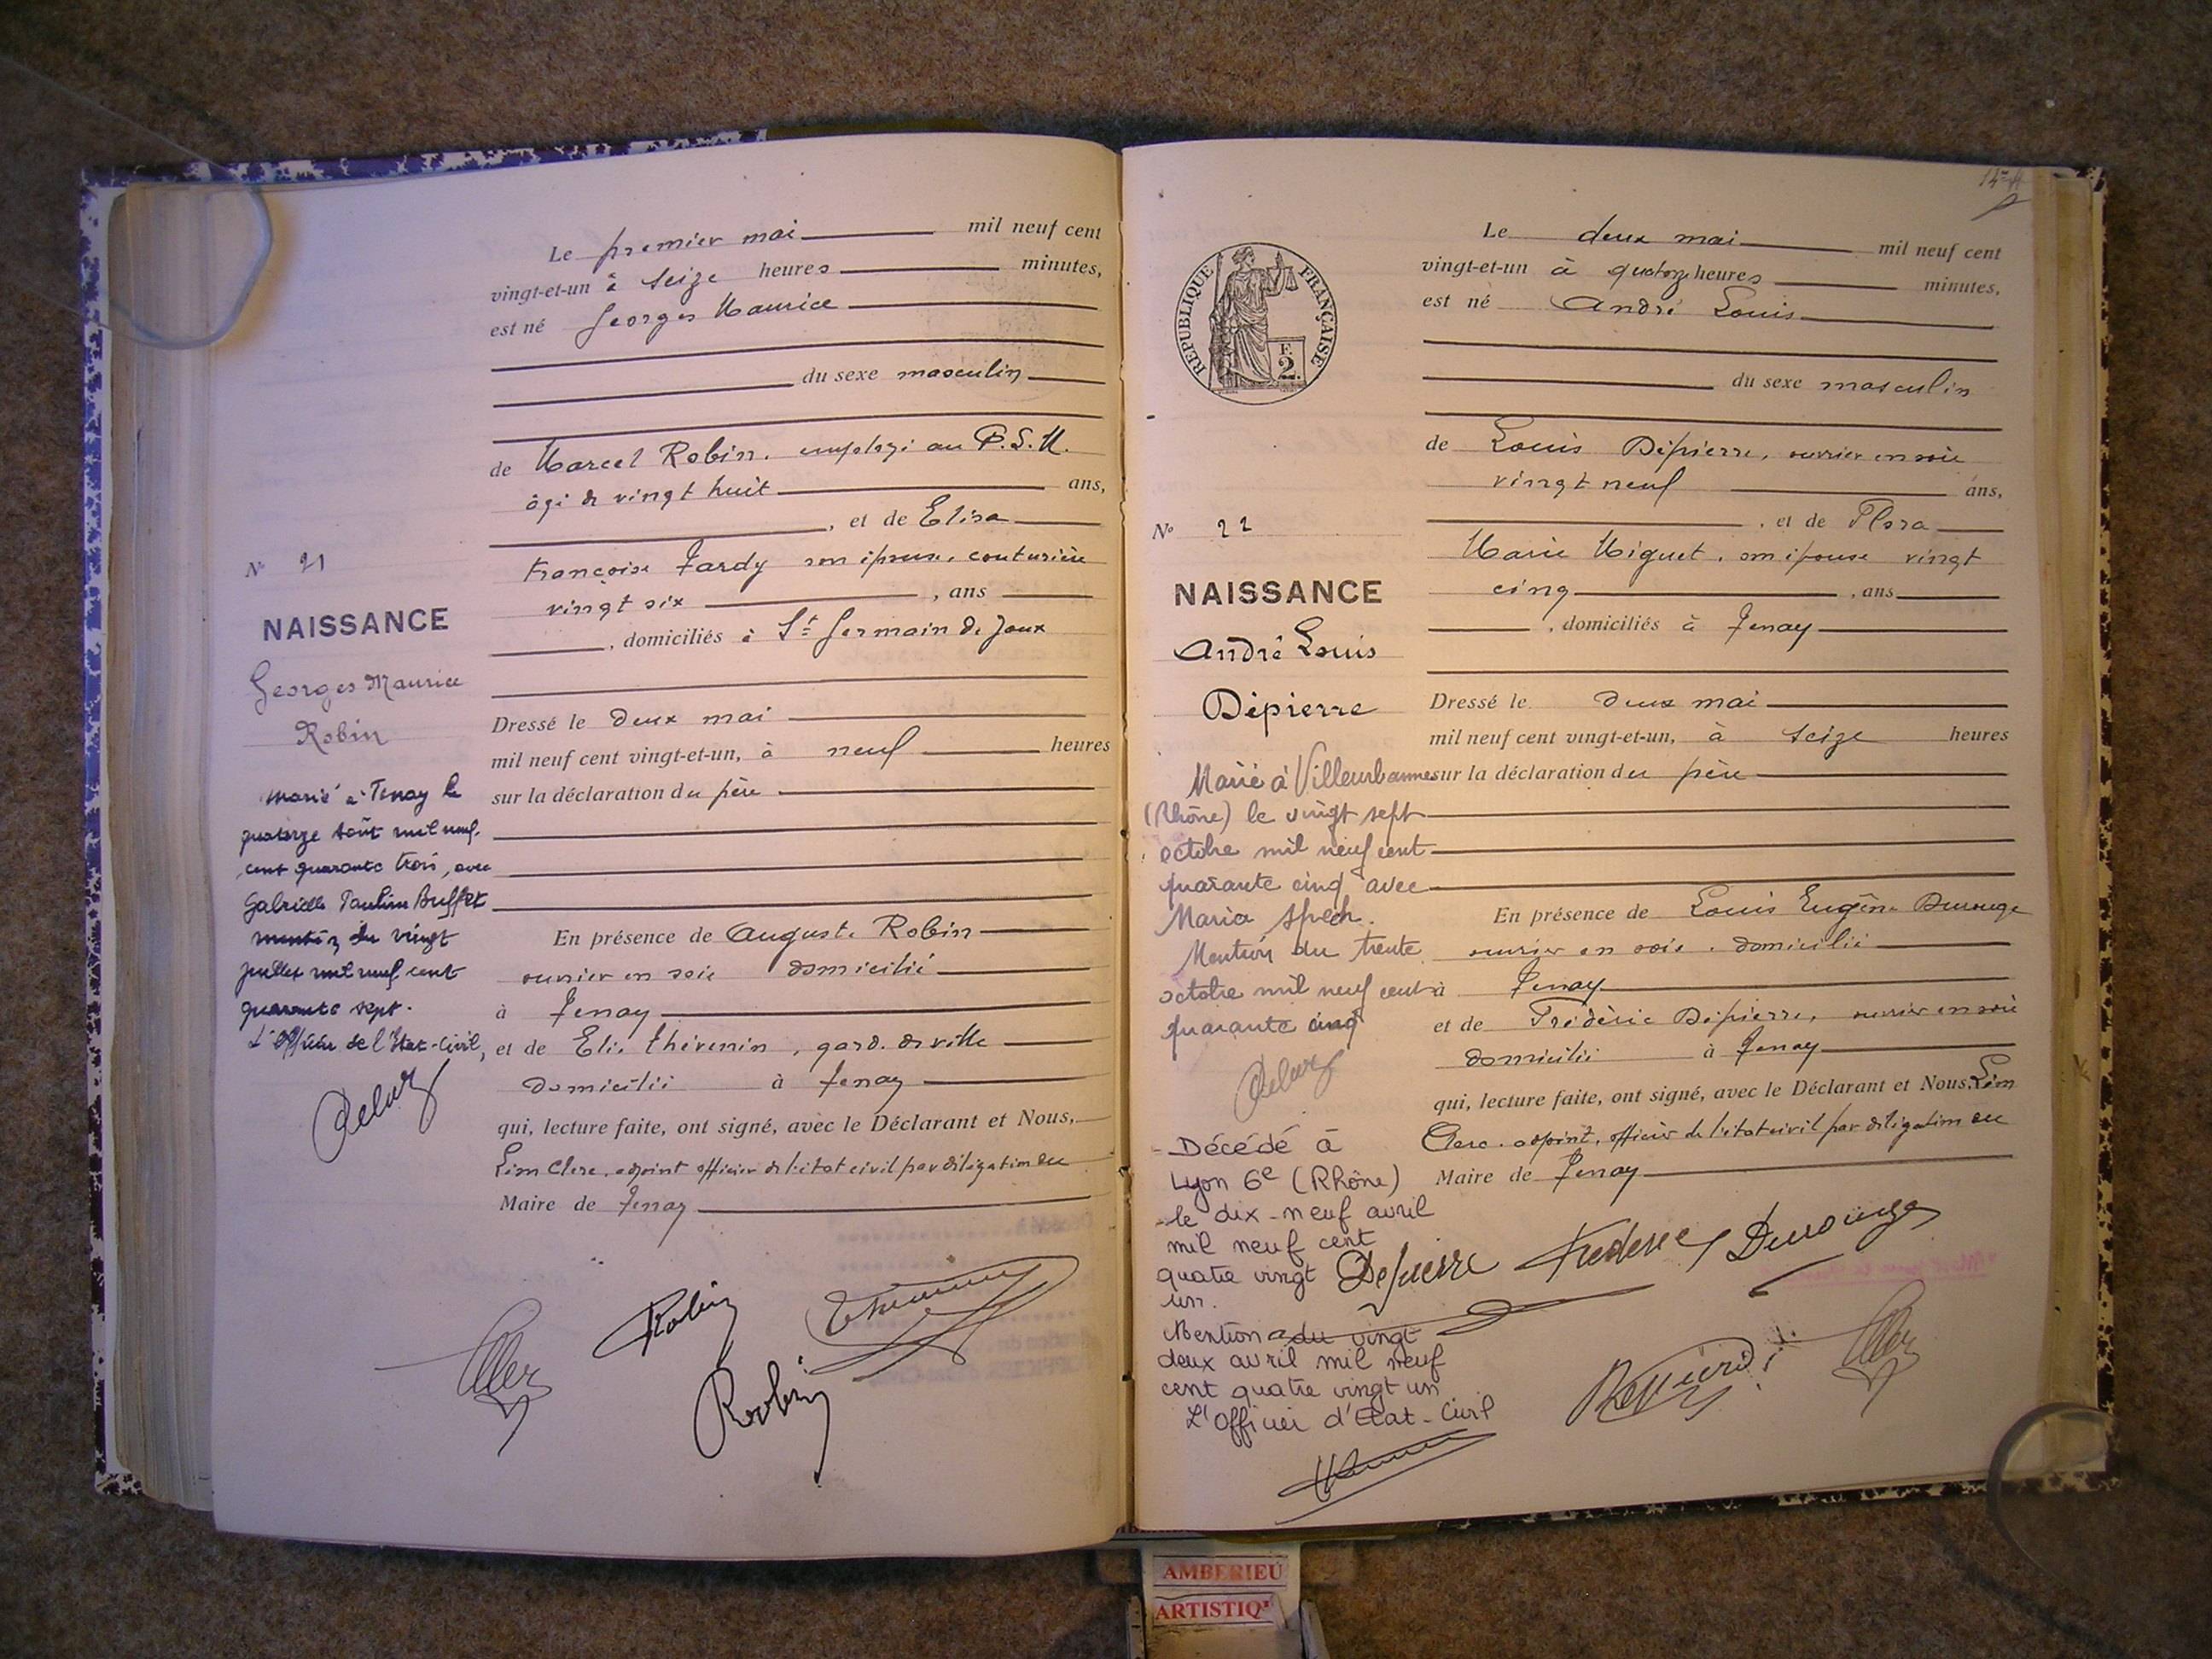 Le premier mai mil neuf cent
vingt-et-un à seize heures minutes,
est né Georges Maurice
du sexe masculin
de Marcel Robin, employé au P.L.M.
âgé de vingt huit ans,
, et de Elisa
Françoise Tardy son épouse, couturière
vingt six , ans
, domiciliés à St Germain de Joux
Dressé le deux mai
mil neuf cent vingt-et-un, à neuf heures
sur la déclaration du père
En présence de Auguste Robin
ouvrier en soie domicilié
à Tenay
et de Elie Thévenin, garde de ville
domicilié à Tenay
qui, lecture faite, ont signé, avec le Déclarant et Nous,
Léon Clerc, adjoint officier de l'état civil par délégation du
Maire de Tenay
Robin
Robin
No 21
NAISSANCE
Georges Maurice
Robin
Marié à Tenay le
quatorze août mil neuf
cent quarante trois, avec
Gabrielle Pauline Buffet
mention du vingt
juillet mil neuf cent
quarante sept.
L'Officier de l'Etat-Civil,
REPUBLIQUE FRANÇAISE
F.
2.
Le deux mai mil neuf cent
vingt-et-un à quatorze heures minutes,
est né André Louis
du sexe masculin
de Louis Dépierre, ouvrier en soie
vingt neuf ans,
, et de Flora
Marie Miguet, son épouse vingt
cinq , ans
, domiciliés à Tenay
Dressé le deux mai
mil neuf cent vingt-et-un, à seize heures
sur la déclaration du père
En présence de Louis Eugène Durouge
ouvrier en soie, domicilié
à Tenay
et de Frédéric Dépierre, ouvrier en soie
domicilié à Tenay
qui, lecture faite, ont signé, avec le Déclarant et Nous, Léon
Clerc, adjoint, officier de l'état civil par délégation du
Maire de Tenay
Depierre Frederic Durouge
No 22
NAISSANCE
André Louis
Dépierre
Marié à Villeurbanne
(Rhône) le vingt sept
octobre mil neuf cent
quarante cinq avec
Maria Spech.
Mention du trente
octobre mil neuf cent
quarante cinq
Décédé à
Lyon 6e (Rhône)
le dix-neuf avril
mil neuf cent
quatre vingt
un.
Mention du vingt
deux avril mil neuf
cent quatre vingt un
L'Officier d'Etat-Civil
AMBERIEU
ARTISTIQ